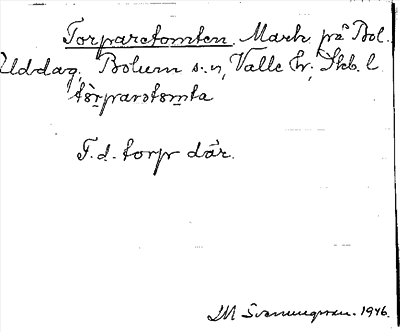 Torparetomten. Mark på Bol.
Uddag, Bolum s:n, Valle hr, Skb. l
tòrparətomta
F.d. torp där.
IM Svenungsson. 1946.